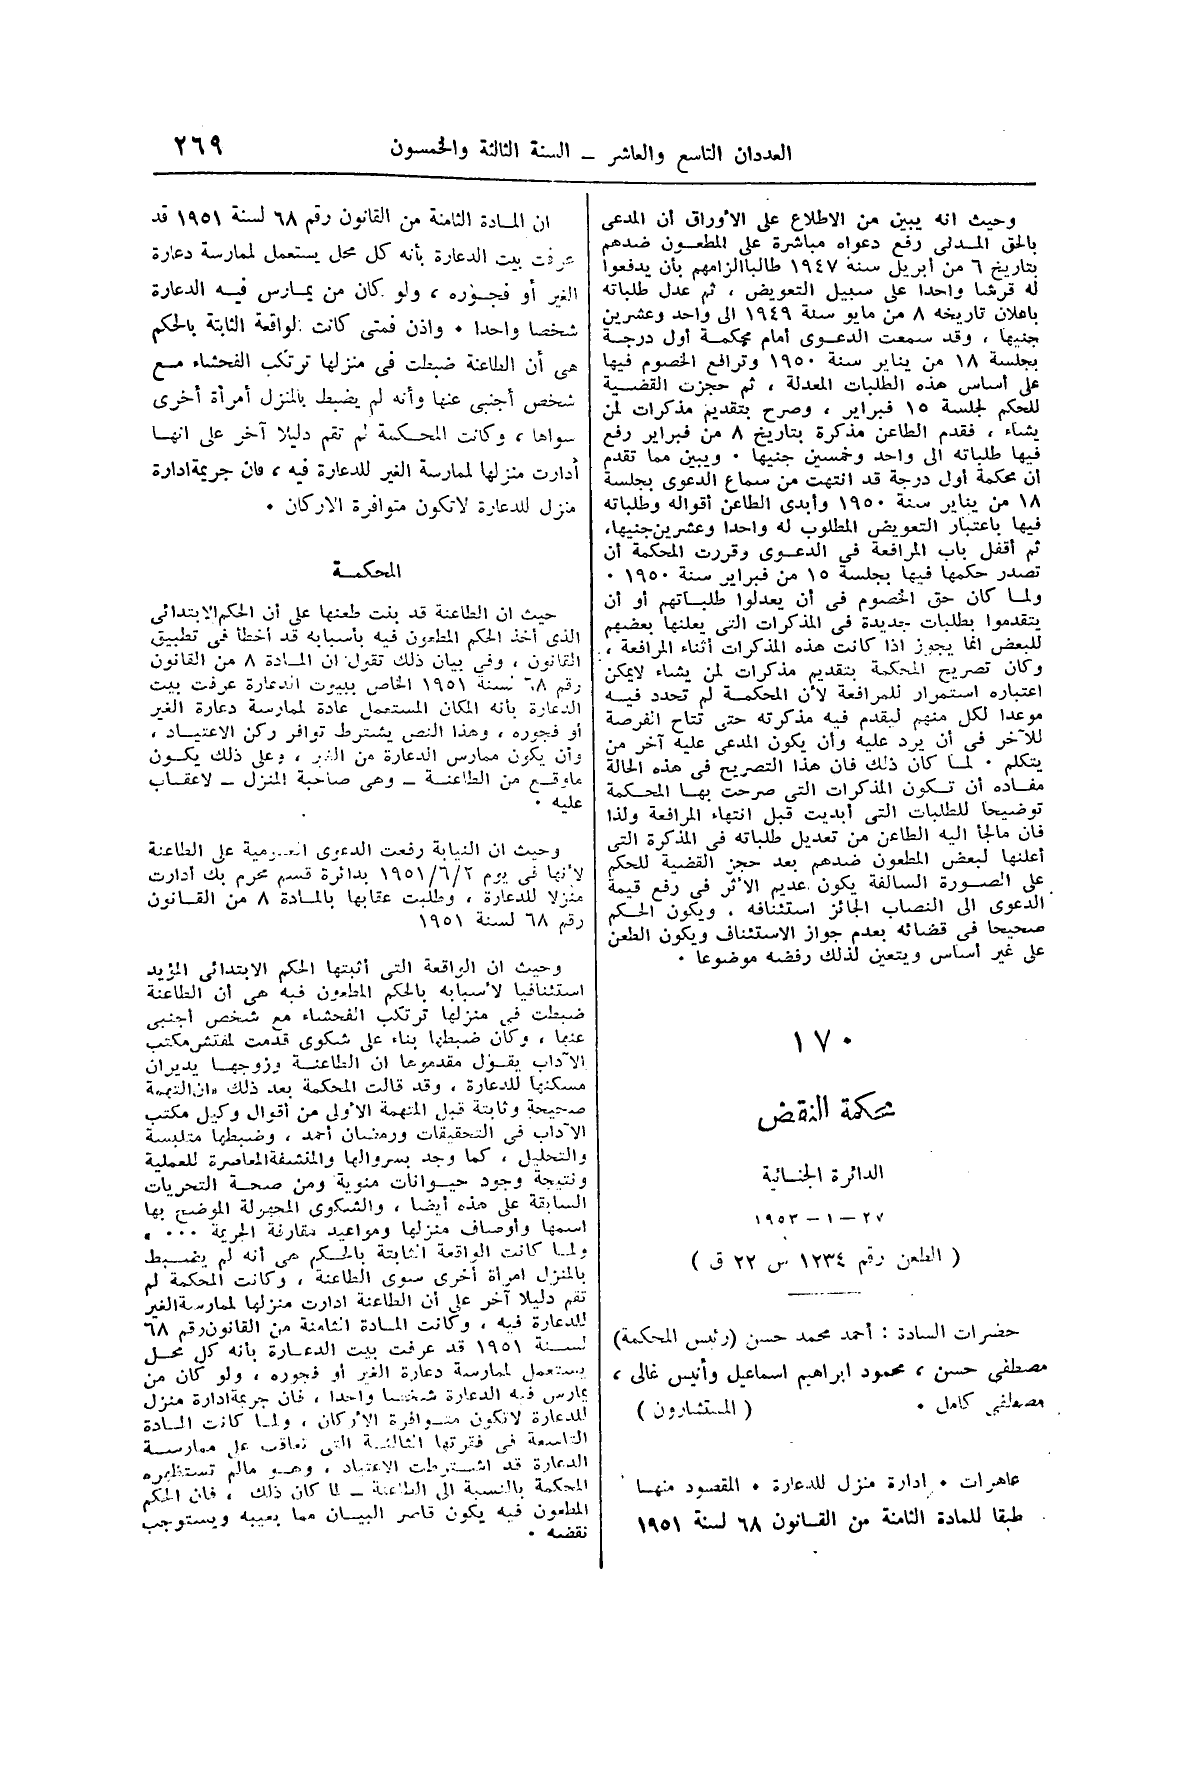 العددان التاسع والعاشر – السنة الثالثة والخمسون
٢٦٩
وحيث انه يبين من الاطلاع على الأوراق أن المدعى
بالحق المدنى رفع دعواه مباشرة على المطعون ضدهم
بتاريخ ٦ من أبريل سنة ١٩٤٧ طالبا الزامهم بأن يدفعوا
له قرشا واحدا على سبيل التعويض ، ثم عدل طلباته
باعلان تاريخه ٨ من مايو سنة ١٩٤٩ الى واحد وعشرين
جنيها ، وقد سمعت الدعوى أمام محكمة أول درجة
بجلسة ١٨ من يناير سنة ١٩٥٠ وترافع الخصوم فيها
على أساس هذه الطلبات المعدلة ، ثم حجزت القضية
للحكم لجلسة ١٥ فبراير ، وصرح بتقديم مذكرات لمن
يشاء ، فقدم الطاعن مذكرة بتاريخ ٨ من فبراير رفع
فيها طلباته الى واحد وخمسين جنيها . ويبين مما تقدم
أن محكمة أول درجة قد انتهت من سماع الدعوى بجلسة
١٨ من يناير سنة ١٩٥٠ وأبدى الطاعن أقواله وطلباته
فيها باعتبار التعويض المطلوب له واحدا وعشرين جنيها،
ثم أقفل باب المرافعة فى الدعوى وقررت المحكمة أن
تصدر حكمها فيها بجلسة ١٥ من فبراير سنة ١٩٥٠ .
ولما كان حق الخصوم فى أن يعدلوا طلباتهم أو أن
يتقدموا بطلبات جديدة فى المذكرات التى يعلنها بعضهم
للبعض انما يجوز اذا كانت هذه المذكرات أثناء المرافعة ،
وكان تصريح المحكمة بتقديم مذكرات لمن يشاء لايمكن
اعتباره استمرار للمرافعة لأن المحكمة لم تحدد فيه
موعدا لكل منهم ليقدم فيه مذكرته حتى تتاح الفرصة
للآخر فى أن يرد عليه وأن يكون المدعى عليه آخر من
يتكلم . لما كان ذلك فان هذا التصريح فى هذه الحالة
مفاده أن تكون المذكرات التى صرحت بها المحكمة
توضيحا للطلبات التى أبديت قبل انتهاء المرافعة ولذا
فان مالجأ اليه الطاعن من تعديل طلباته فى المذكرة التى
أعلنها لبعض المطعون ضدهم بعد حجز القضية للحكم
على الصورة السالفة يكون عديم الأثر فى رفع قيمة
الدعوى الى النصاب الجائز استئنافه . ويكون الحكم
صحيحا فى قضائه بعدم جواز الاستئناف ويكون الطعن
على غير أساس ويتعين لذلك رفضه موضوعا .
١٧٠
محكمة النقض
الدائرة الجنائية
٢٧ – ١ – ١٩٥٣
( الطعن رقم ١٢٣٤ س ٢٢ ق )
حضرات السادة : أحمد محمد حسن (رئيس المحكمة)
مصطفى حسن ، محمود ابراهيم اسماعيل وأنيس غالى ،
مصطفى كامل . ( المستشارون )
عاهرات . إدارة منزل للدعارة . المقصود منها
طبقا للمادة الثامنة من القانون ٦٨ لسنة ١٩٥١
ان المادة الثامنة من القانون رقم ٦٨ لسنة ١٩٥١ قد
عرفت بيت الدعارة بأنه كل محل يستعمل لممارسة دعارة
الغير أو فجوره ، ولو كان من يمارس فيه الدعارة
شخصا واحدا . واذن فمتى كانت الواقعة الثابتة بالحكم
هى أن الطاعنة ضبطت فى منزلها ترتكب الفحشاء مع
شخص أجنبى عنها وأنه لم يضبط بالمنزل أمرأة أخرى
سواها ، وكانت المحكمة لم تقم دليلا آخر على انها
أدارت منزلها لممارسة الغير للدعارة فيه ، فان جريمة ادارة
منزل للدعارة لاتكون متوافرة الاركان .
المحكمة
حيث ان الطاعنة قد بنت طعنها على أن الحكم الابتدائى
الذى أخذ الحكم المطعون فيه بأسبابه قد أخطأ فى تطبيق
القانون ، وفى بيان ذلك تقول ان المادة ٨ من القانون
رقم ٦٨ لسنة ١٩٥١ الخاص ببيوت الدعارة عرفت بيت
الدعارة بأنه المكان المستعمل عادة لممارسة دعارة الغير
أو فجوره ، وهذا النص يشترط توافر ركن الاعتياد ،
وأن يكون ممارس الدعارة من الغير ، وعلى ذلك يكون
ماوقع من الطاعنة – وهى صاحبة المنزل – لاعقاب
عليه .
وحيث ان النيابة رفعت الدعوى العمومية على الطاعنة
لأنها فى يوم ١٩٥١/٦/٢ بدائرة قسم محرم بك أدارت
منزلا للدعارة ، وطلبت عقابها بالمادة ٨ من القانون
رقم ٦٨ لسنة ١٩٥١
وحيث ان الواقعة التى أثبتها الحكم الابتدائى المؤيد
استئنافيا لأسبابه بالحكم المطعون فيه هى أن الطاعنة
ضبطت فى منزلها ترتكب الفحشاء مع شخص أجنبى
عنها ، وكان ضبطها بناء على شكوى قدمت لمفتش مكتب
الآداب يقول مقدموها ان الطاعنة وزوجها يديران
مسكنها للدعارة ، وقد قالت المحكمة بعد ذلك «ان التهمة
صحيحة وثابتة قبل المتهمة الأولى من أقوال وكيل مكتب
الآداب فى التحقيقات ورمضان أحمد ، وضبطها متلبسة
والتحليل ، كما وجد بسروالها والمنشفة المعاصرة للعملية
ونتيجة وجود حيوانات منوية ومن صحة التحريات
السابقة على هذه أيضا ، والشكوى المجهولة الموضح بها
اسمها وأوصاف منزلها ومواعيد مقارفة الجريمة ... »
ولما كانت الواقعة الثابتة بالحكم هى أنه لم يضبط
بالمنزل امرأة أخرى سوى الطاعنة ، وكانت المحكمة لم
تقم دليلا آخر على أن الطاعنة ادارت منزلها لممارسة الغير
للدعارة فيه ، وكانت المادة الثامنة من القانون رقم ٦٨
لسنة ١٩٥١ قد عرفت بيت الدعارة بأنه كل محل
يستعمل لممارسة دعارة الغير أو فجوره ، ولو كان من
يمارس فيه الدعارة شخصا واحدا ، فان جريمة ادارة منزل
للدعارة لاتكون متوافرة الأركان ، ولما كانت المادة
التاسعة فى فقرتها الثالثة التى تعاقب على ممارسة
الدعارة قد اشترطت الاعتياد ، وهو مالم تستظهره
المحكمة بالنسبة الى الطاعنة – لما كان ذلك ، فان الحكم
المطعون فيه يكون قاصر البيان مما يعيبه ويستوجب
نقضه .